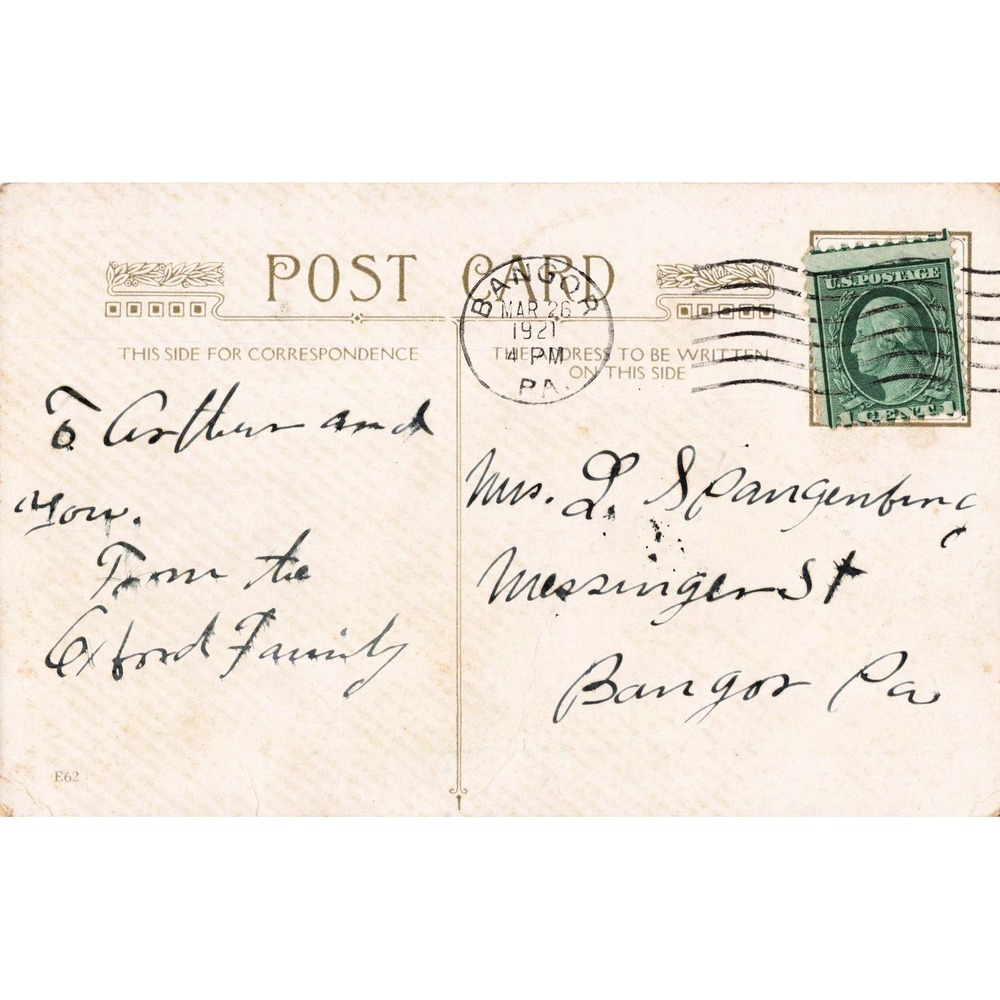 POST CARD
BANGOR
MAR 26
1921
4 PM
PA.
U.S. POSTAGE
1 CENT 1
THIS SIDE FOR CORRESPONDENCE
THE ADDRESS TO BE WRITTEN
ON THIS SIDE
To Arthur and
you.
From the
Oxford Family
Mrs. L. Spangenburg
Messinger St
Bangor Pa
E62